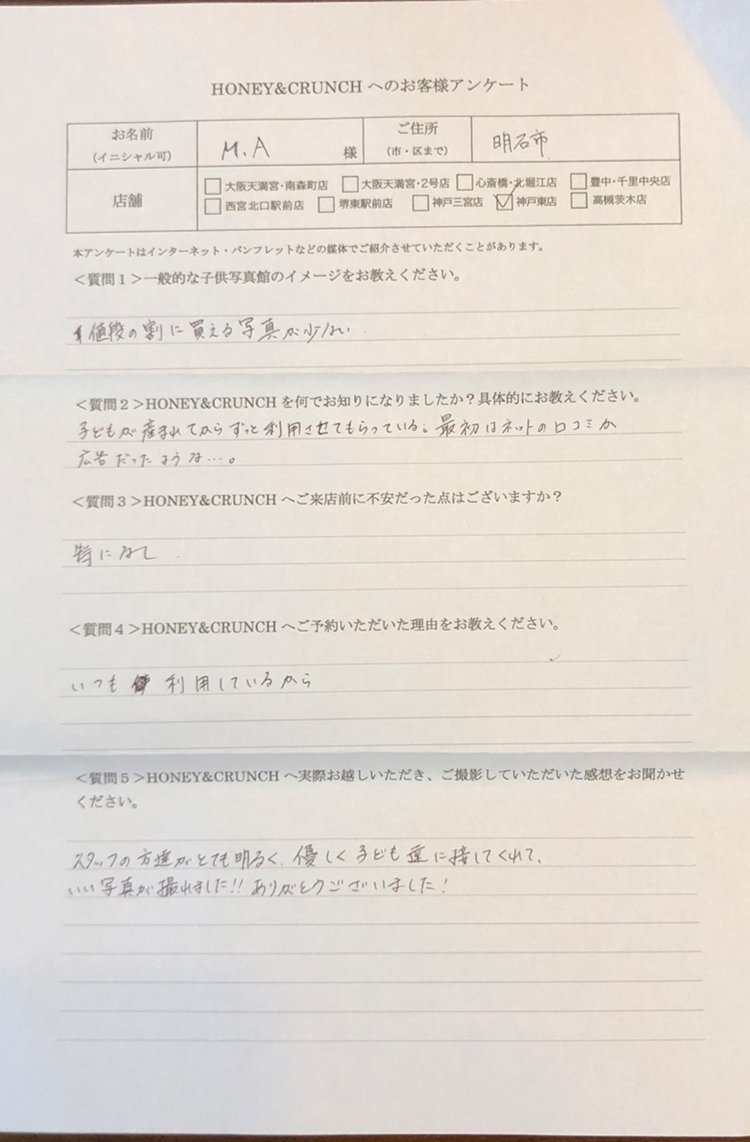 HONEY&CRUNCH へのお客様アンケート
お名前
(イニシャル可)
M.A
様
ご住所
(市・区まで)
明石市
店舗
大阪天満宮・南森町店 大阪天満宮・2号店 心斎橋・北堀江店 豊中・千里中央店
西宮北口駅前店 堺東駅前店 神戸三宮店 神戸東店 高槻茨木店
本アンケートはインターネット・パンフレットなどの媒体でご紹介させていただくことがあります。
<質問1>一般的な子供写真館のイメージをお教えください。
値段の割に買える写真が少ない.
<質問2>HONEY&CRUNCH を何でお知りになりましたか?具体的にお教えください。
子どもが産まれてからずっと利用させてもらっている。最初はネットの口コミか
広告だったような…。
<質問3>HONEY&CRUNCH へご来店前に不安だった点はございますか?
特になし.
<質問4>HONEY&CRUNCH へご予約いただいた理由をお教えください。
いつも利用しているから
<質問5>HONEY&CRUNCH へ実際お越しいただき、ご撮影していただいた感想をお聞かせ
ください。
スタッフの方達がとても明るく、優しく子ども達に接してくれて、
いい写真が撮れました!!ありがとうございました!